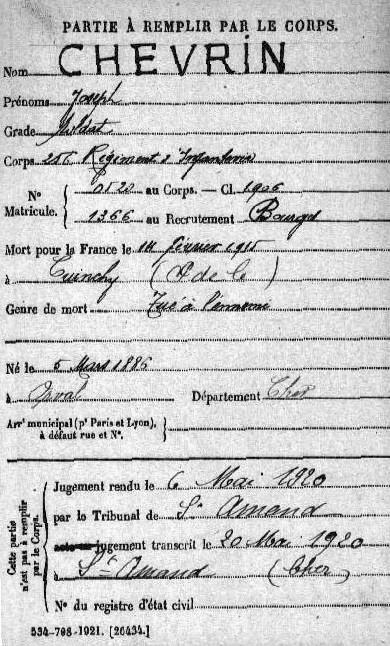 PARTIE À REMPLIR PAR LE CORPS.
Nom CHEVRIN
Prénoms Joseph
Grade Soldat
Corps 256 Régiment d'Infanterie
N° Matricule. { 0520 au Corps. — Cl. 1906
1366 au Recrutement Bourges
Mort pour la France le 14 février 1915
à Cuinchy (P de C)
Genre de mort Tué à l'ennemi
Né le 5 Mars 1886
à Orval Département Cher
Arrt municipal (pr Paris et Lyon), à défaut rue et N°. }
Cette partie n'est pas à remplir par le Corps.
Jugement rendu le 6 Mai 1920
par le Tribunal de St Amand
acte ou jugement transcrit le 20 Mai 1920
à St Amand (Cher)
N° du registre d'état civil
534-708-1921. [26434.]